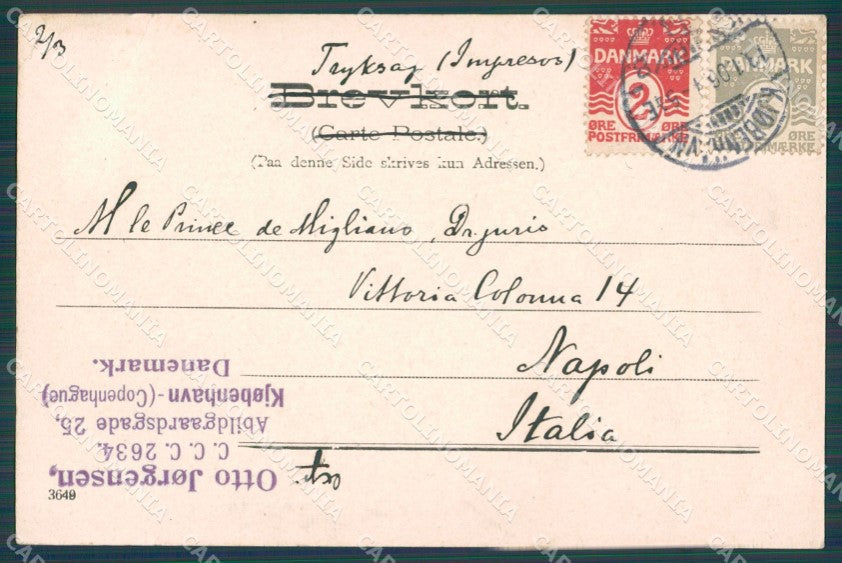 2/3
Tryksag (Impresos)
Brevkort.
(Carte Postale.)
(Paa denne Side skrives kun Adressen.)
DANMARK
2
ØRE ØRE
POSTFRIMÆRKE
DANMARK
ØRE
M le Prince de Migliano, Dr juris
Vittoria Colonna 14
Napoli
Italia
Otto Jørgensen,
C. C. C. 2634.
Abildgaardsgade 25,
Kjøbenhavn - (Copenhague)
Danemark.
3649
CARTOLINOMANIA